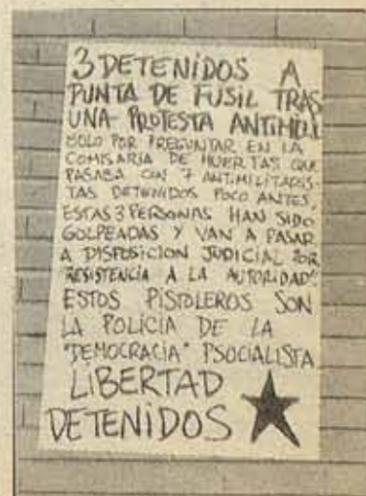 3 DETENIDOS A
PUNTA DE FUSIL TRAS
UNA PROTESTA ANTIMILI
SOLO POR PREGUNTAR EN LA
COMISARIA DE HUERTAS QUE
PASABA CON 7 ANTIMILITARIS-
TAS DETENIDOS POCO ANTES,
ESTAS 3 PERSONAS HAN SIDO
GOLPEADAS Y VAN A PASAR
A DISPOSICION JUDICIAL POR
"RESISTENCIA A LA AUTORIDAD".
ESTOS PISTOLEROS SON
LA POLICIA DE LA
"DEMOCRACIA" PSOCIALISTA
LIBERTAD
DETENIDOS